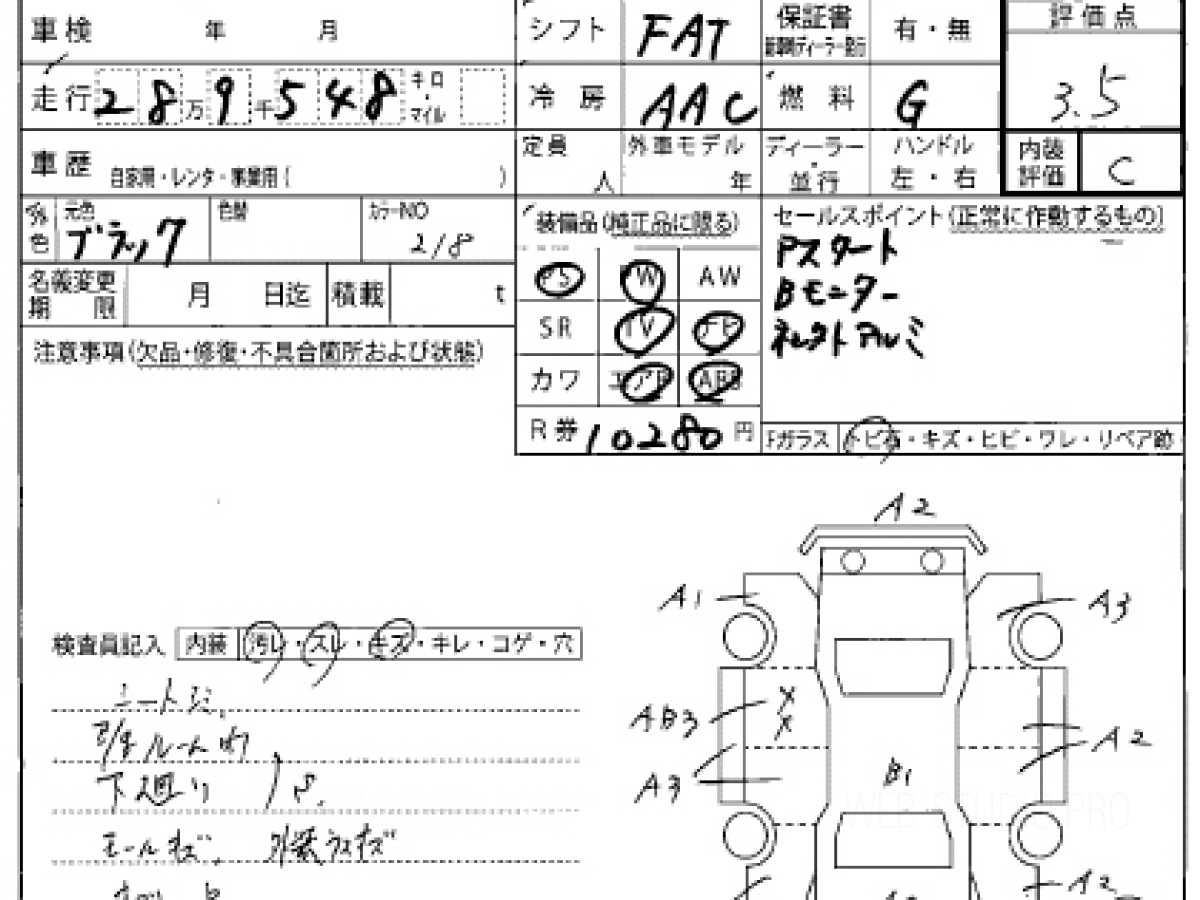 車検 年 月
シフト FAT
保証書 新車時ディーラー発行 有・無
評価点
3.5
走行 28万9千548 キロ・マイル
冷房 AAC
燃料 G
車歴 自家用・レンタ・事業用( )
定員 人
外車モデル 年
ディーラー・並行
ハンドル 左・右
内装評価 C
外色 元色 ブラック
色替
カラーNO 218
装備品(純正品に限る)
セールスポイント(正常に作動するもの)
Pスタート
Bモニター
社外アルミ
名義変更期限 月 日迄
積載 t
PS PW AW
SR TV
カワ エアB ABS
R券 10280円
注意事項(欠品・修復・不具合箇所および状態)
Fガラス トビ石・キズ・ヒビ・ワレ・リペア跡
A2
A1
A3
検査員記入 内装 汚レ・スレ・キズ・キレ・コゲ・穴
シートシミ、
ルーム内
下廻り
モールキズ、外装ラスキズ
X
X
AB3
A3
A2
B1
A2
WEB STUDIO PRO